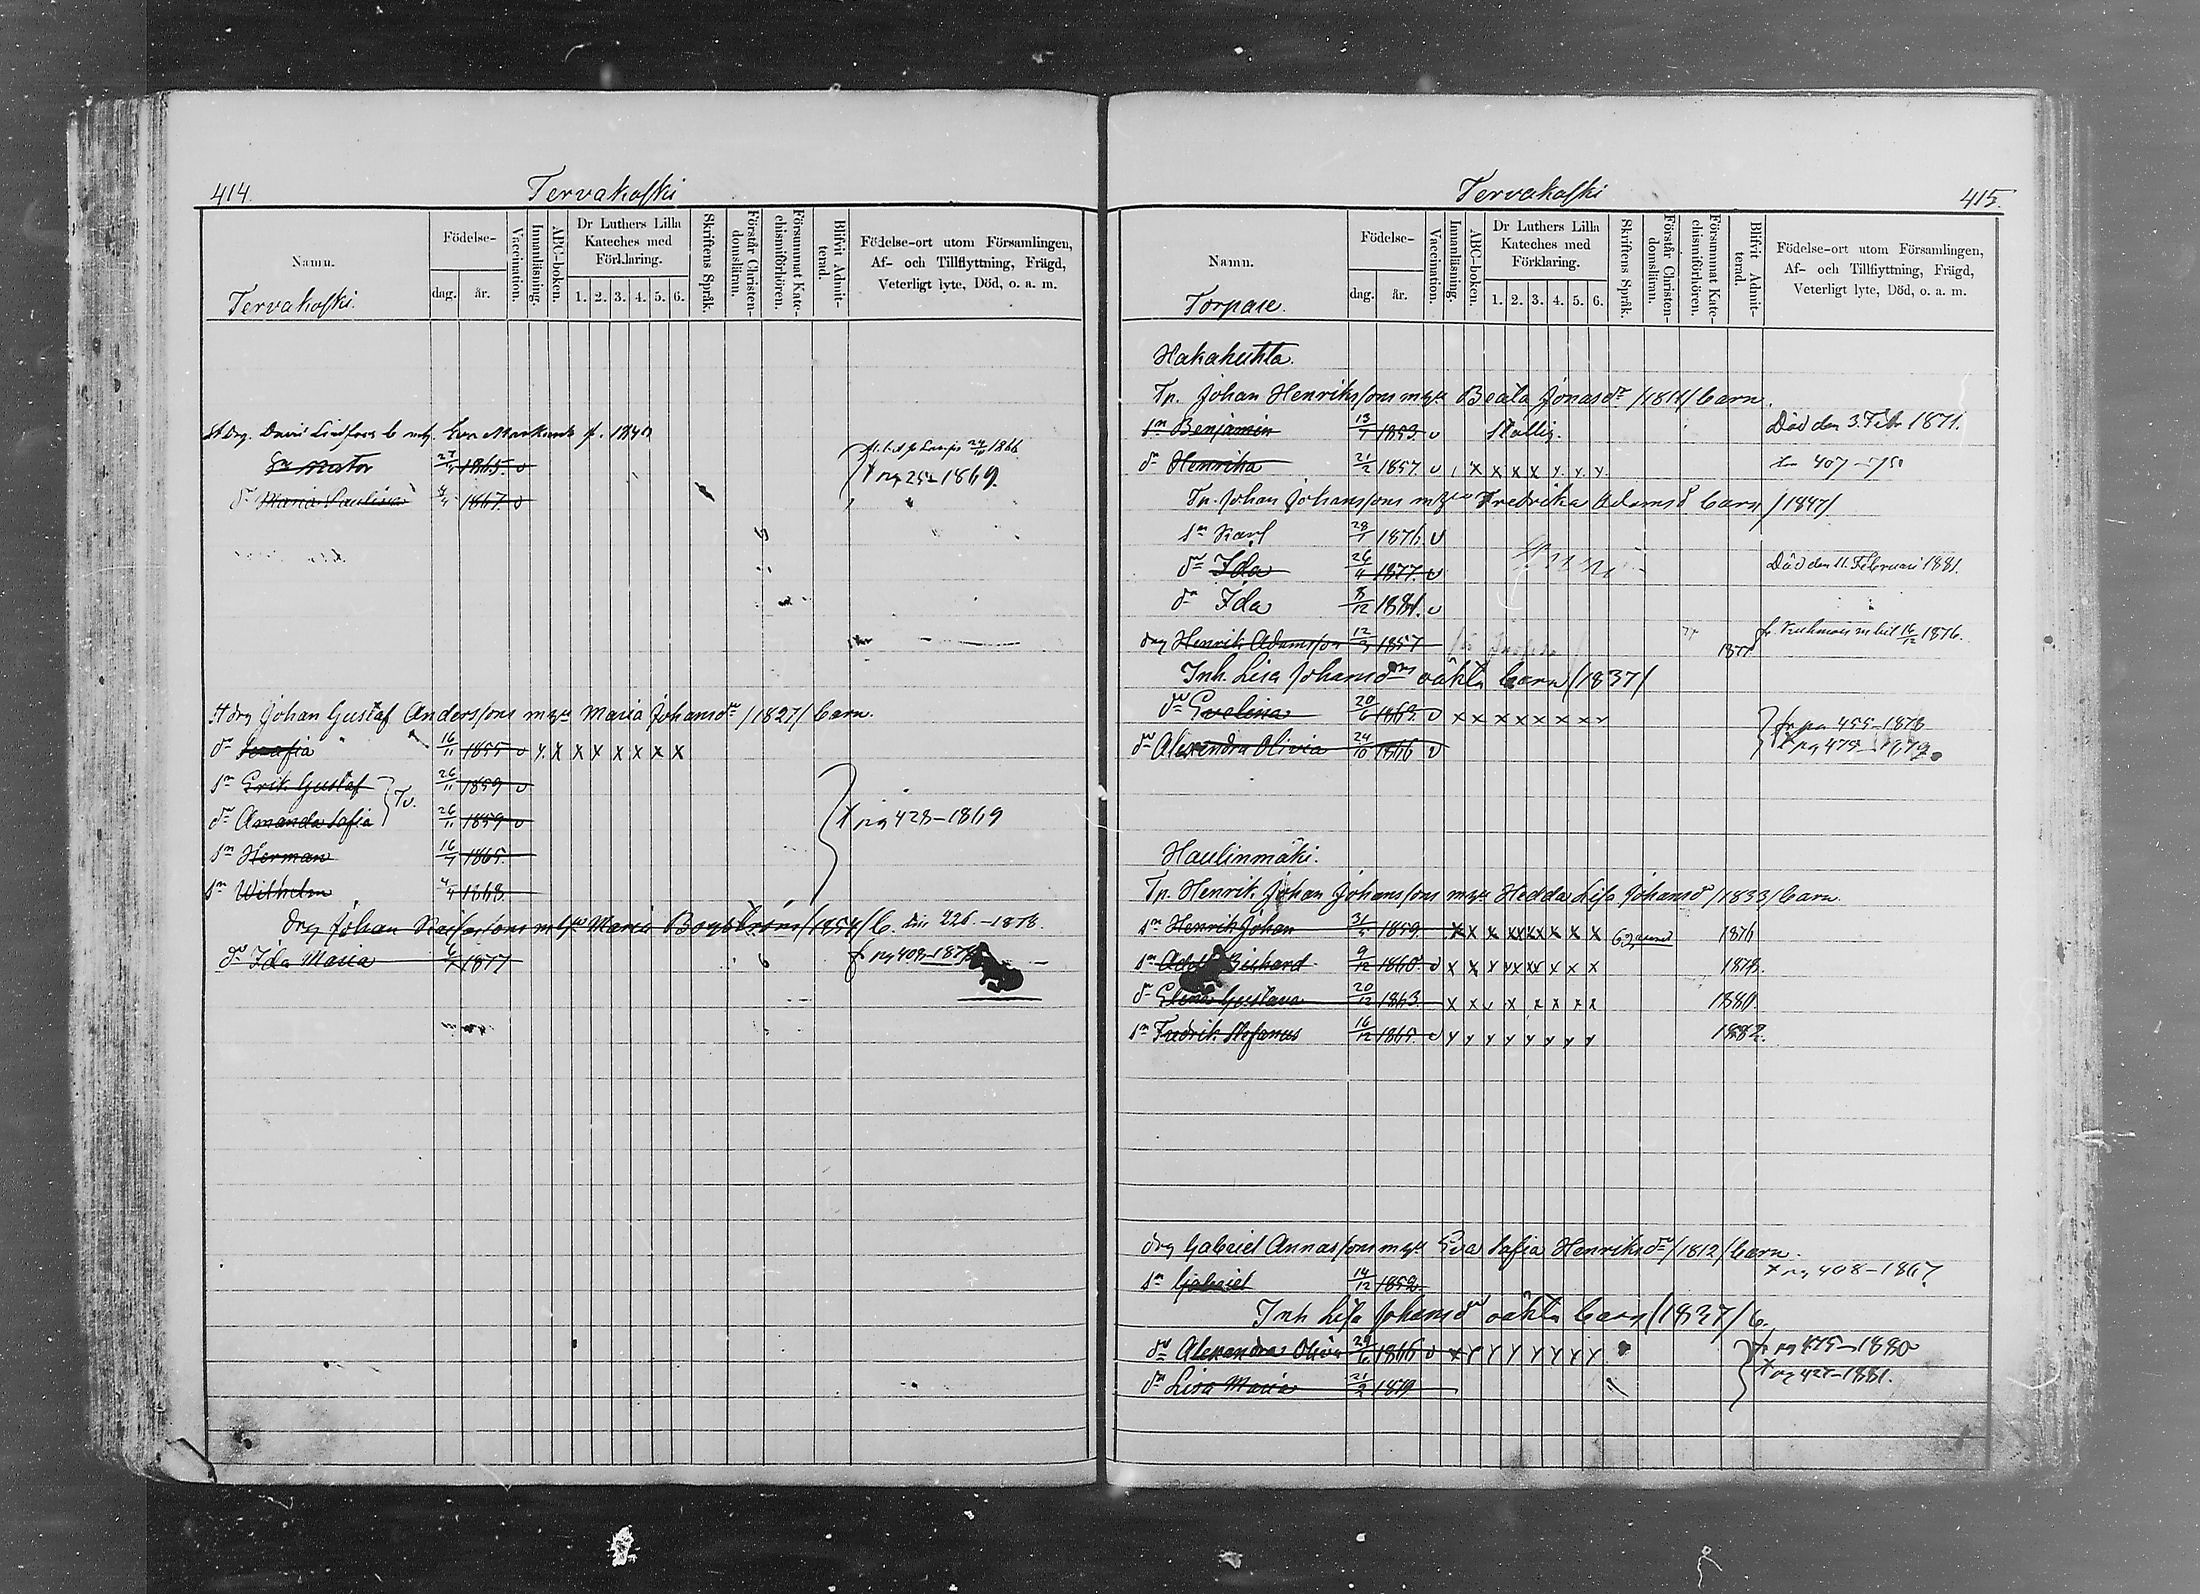 414.
Tervakoski
Namn.
Födelse-
dag.
år.
Vaccination.
Innanläsning.
ABC-boken.
Dr Luthers Lilla Kateches med Förklaring.
1. 2. 3. 4. 5. 6.
Skriftens Språk.
Förstår Christen-domslären.
Försummat Kate-chismiförhören.
Blifvit Admit-terad.
Födelse-ort utom Församlingen,
Af- och Tillflyttning, Frägd,
Veterligt lyte, Död, o. a. m.
Tervakoski.
St drg. David Lindfors b
27/ 1865 v
dr Maria Paulina 1867 v
1866
1869
St drg Johan Gustaf Anderssons m hu Maria Johansdr /1827/ barn.
dr Serafia 16/11 1855 v x x x x x x x x
sn Erik Gustaf 26/11 1859 v
Tv.
dr Amanda Sofia 26/11 1859 v
x pg 428–1869
sn Herman 16/ 1865
sn Wilhelm 4/4 1868.
drg Johan m hu Maria b. 226.–1878.
dr Ida Maria 1877
415.
Tervakoski
Namn.
Födelse-
dag.
år.
Vaccination.
Innanläsning.
ABC-boken.
Dr Luthers Lilla Kateches med Förklaring.
1. 2. 3. 4. 5. 6.
Skriftens Språk.
Förstår Christen-domslären.
Försummat Kate-chismiförhören.
Blifvit Admit-terad.
Födelse-ort utom Församlingen,
Af- och Tillflyttning, Frägd,
Veterligt lyte, Död, o. a. m.
Torpare.
Hakahuhta.
Tp. Johan Henrikssons m hu Beata Jonasdr barn.
sn Benjamin 1853. v Död den 3. Febr 1871.
dr Henrika 21/2 1857. v x x x x x x x 407
Tp. Johan Johanssons m hu Fredrika Adamsdr barn /1847/
sn Karl 28/1 1876. v
dr Ida 26/4 1877. v Död den 11. Februari 1881.
dr Ida 8/12 1881. v
drg Henrik Adamsson 12/3 1857 1877 16/12 1876.
Inh. Lisa Johansdrs oäkta barn /1837/
dr Evelina 20/6 1863. v x x x x x x x x
fr pg 455–1878
dr Alexandra Olivia 24/10 1866 v
x pg 479–1879.
Haulinmäki.
Tp. Henrik Johan Johanssons m hu Hedda Lisa Johansdr /1833/ barn
sn Henrik Johan 31/5 1859. x x x xx xx x x x 1876
sn Richard 9/12 1860. v x x x xx xx x x x 1878.
dr Elena Gustava 20/12 1863. x x x x x x x x 1880.
sn Fredrik Stefanus 16/12 1865. v x x x x x x x x 1882.
drg Gabriel Annassons m hu Eva Sofia Henriksdr /1812/ barn.
sn Gabriel 14/12 1852.
x pg 408–1867
Inh Lisa Johansdr oäkta barn /1837/ b.
dr Alexandra Olivia 1866 v x x x x x x x x
fr pg 475–1880
dr Lisa Maria 21/2 1879
x pg 421–1881.